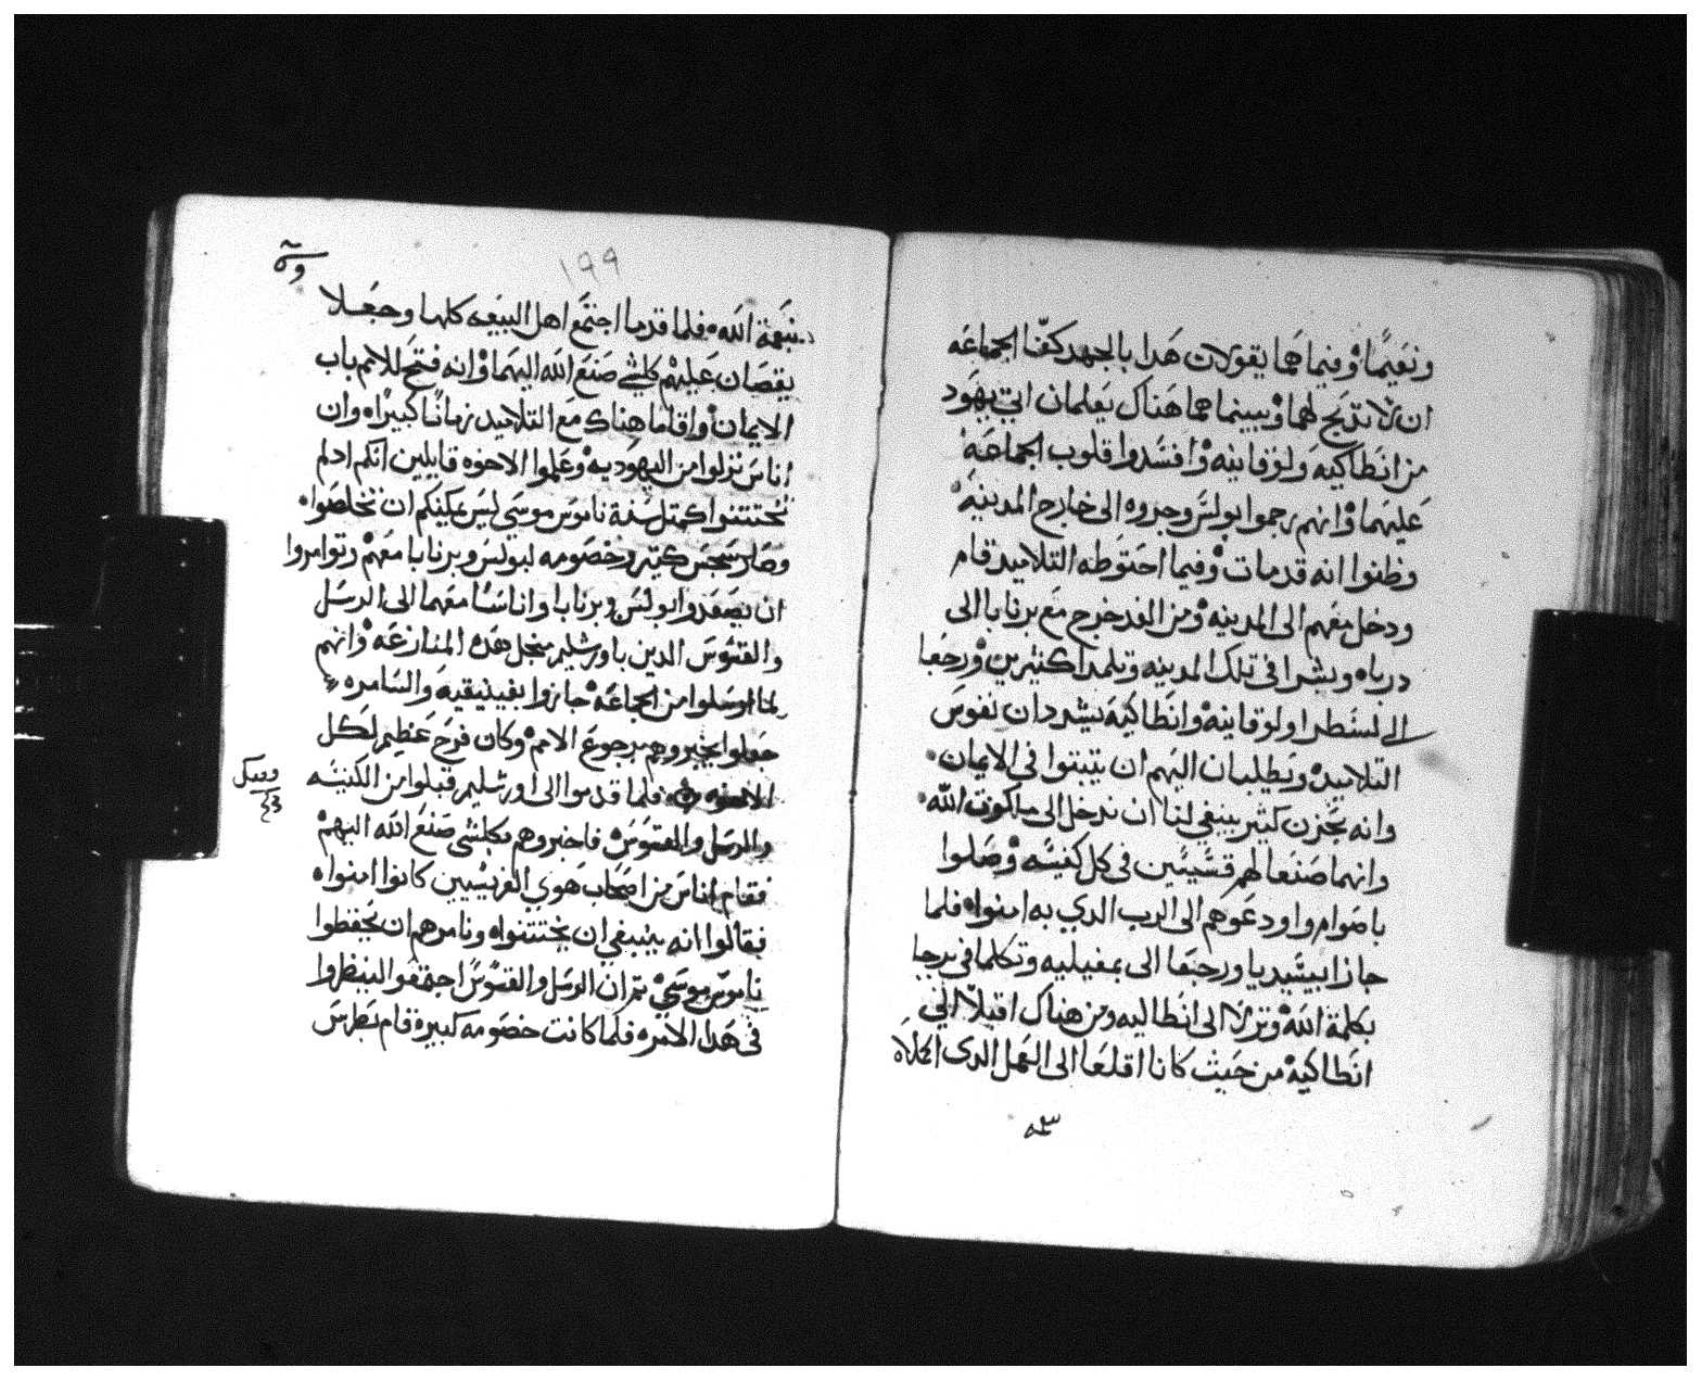 ونعيمًا وفيما هما يقولان هدا بالجهد كفّا الجماعه
ان لا تدبح لهما وبينما هما هناك يعلمان اتي يهود
من انطاكيه ولوقانيه وافسدوا قلوب الجماعه
عليهما وانهم رجموا بولس وجروه الى خارج المدينه
وظنوا انه قد مات وفيما احتوطه التلاميد قام
ودخل معهم الى المدينه ومن الغد خرج مع برنابا الى
درباه وبشرا في تلك المدينه وتلمدا كثيرين ورجعا
الى لسطرا ولوقانيه وانطاكيه يشددان نفوس
التلاميد ويطلبان اليهم ان يتبتوا في الايمان
وانه بحزن كتير ينبغي لنا ان ندخل الى ملكوت الله
وانهما صنعا لهم قسيسين في كل كنيسه وصلوا
باصوام واودعوهم الى الرب الدي به امنوا فلما
جازا بيسيديا ورجعا الى بمفيليه وتكلما في برجا
بكلمة الله ونزلا الى انطاليه ومن هناك اقبلا الي
انطاكيه من حيث كانا اقلعا الى العمل الدى اكملاه
١٩٩
بنعمة الله فلما قدما اجتمع اهل البيعه كلها وجعلا
يقصان عليهم كلشي صنع الله اليهما وانه فتح للامم باب
الايمان واقاما هناك مع التلاميد زمانًا كبيرًا وان
اناس نزلوا من اليهوديه وعلموا الاخوه قايلين انكم ادلم
تختتنوا كمتل سنة ناموس موسى ليس يمكنكم ان تخلصوا
وصار سجس كتير وخصومه لبولس وبرنابا معهم وتوامروا
ان يصعدوا بولس وبرنابا واناسًا معهما الى الرسل
والقسوس الدين باورشليم منجل هده المنازعه وانهم
لما ارسلوا من الجماعه جازوا بفينيقيه والسامره
جعلوا يخبروهم برجوع الامم وكان فرح عظيم لكل
الاخوه فلما قدموا الى اورشليم قبلوا من الكنيسه
والرسل والقسوس فاخبروهم بكلشى صنع الله اليهم
فقام اناس من اصحاب هوي الفريسيين كانوا امنوا
فقالوا انه ينبغي ان يختتنوا ونامرهم ان يحفظوا
ناموس موسى تم ان الرسل والقسوس اجتمعوا لينظروا
في هدا الامر فلما كانت خصومه كبيرة قام بطرس